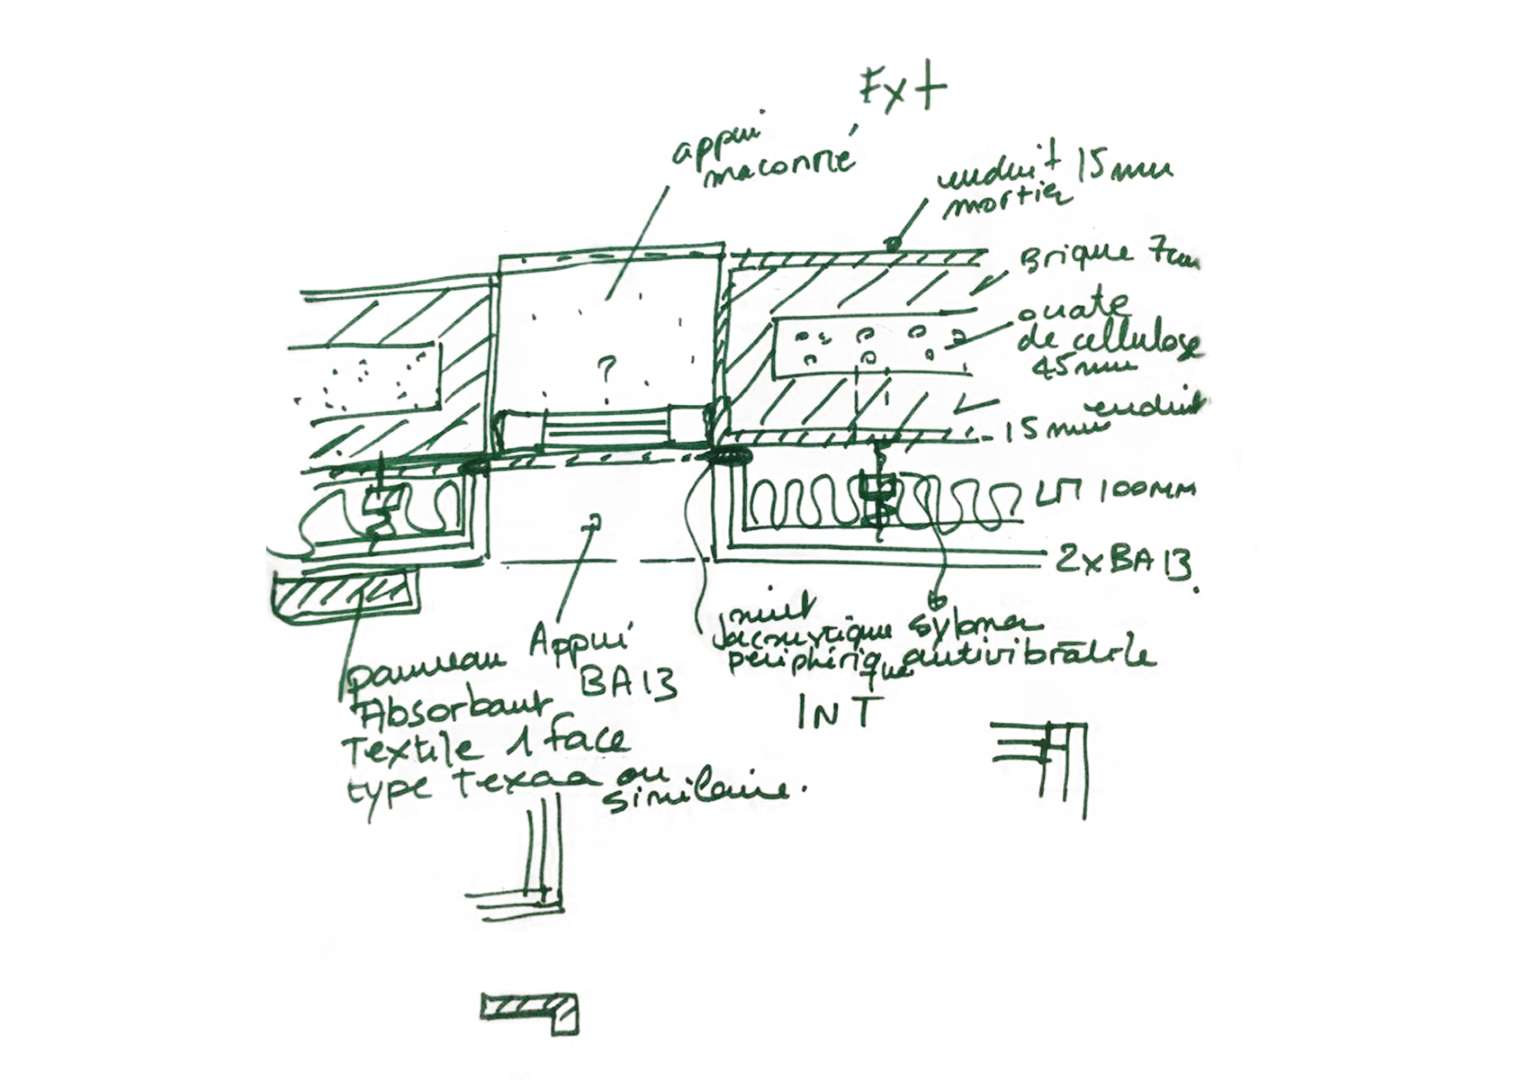 Ext
appui
maconné
enduit 15mm
mortier
Brique 7cm
ouate
de cellulose
45mm
enduit
15mm
?
LM 100MM
2xBA13.
joint
acoustique
périphérique
sylomer
antivibratile
INT
Appui
BA13
panneau
Absorbant
Textile 1 face
type Texaa ou
similaire.